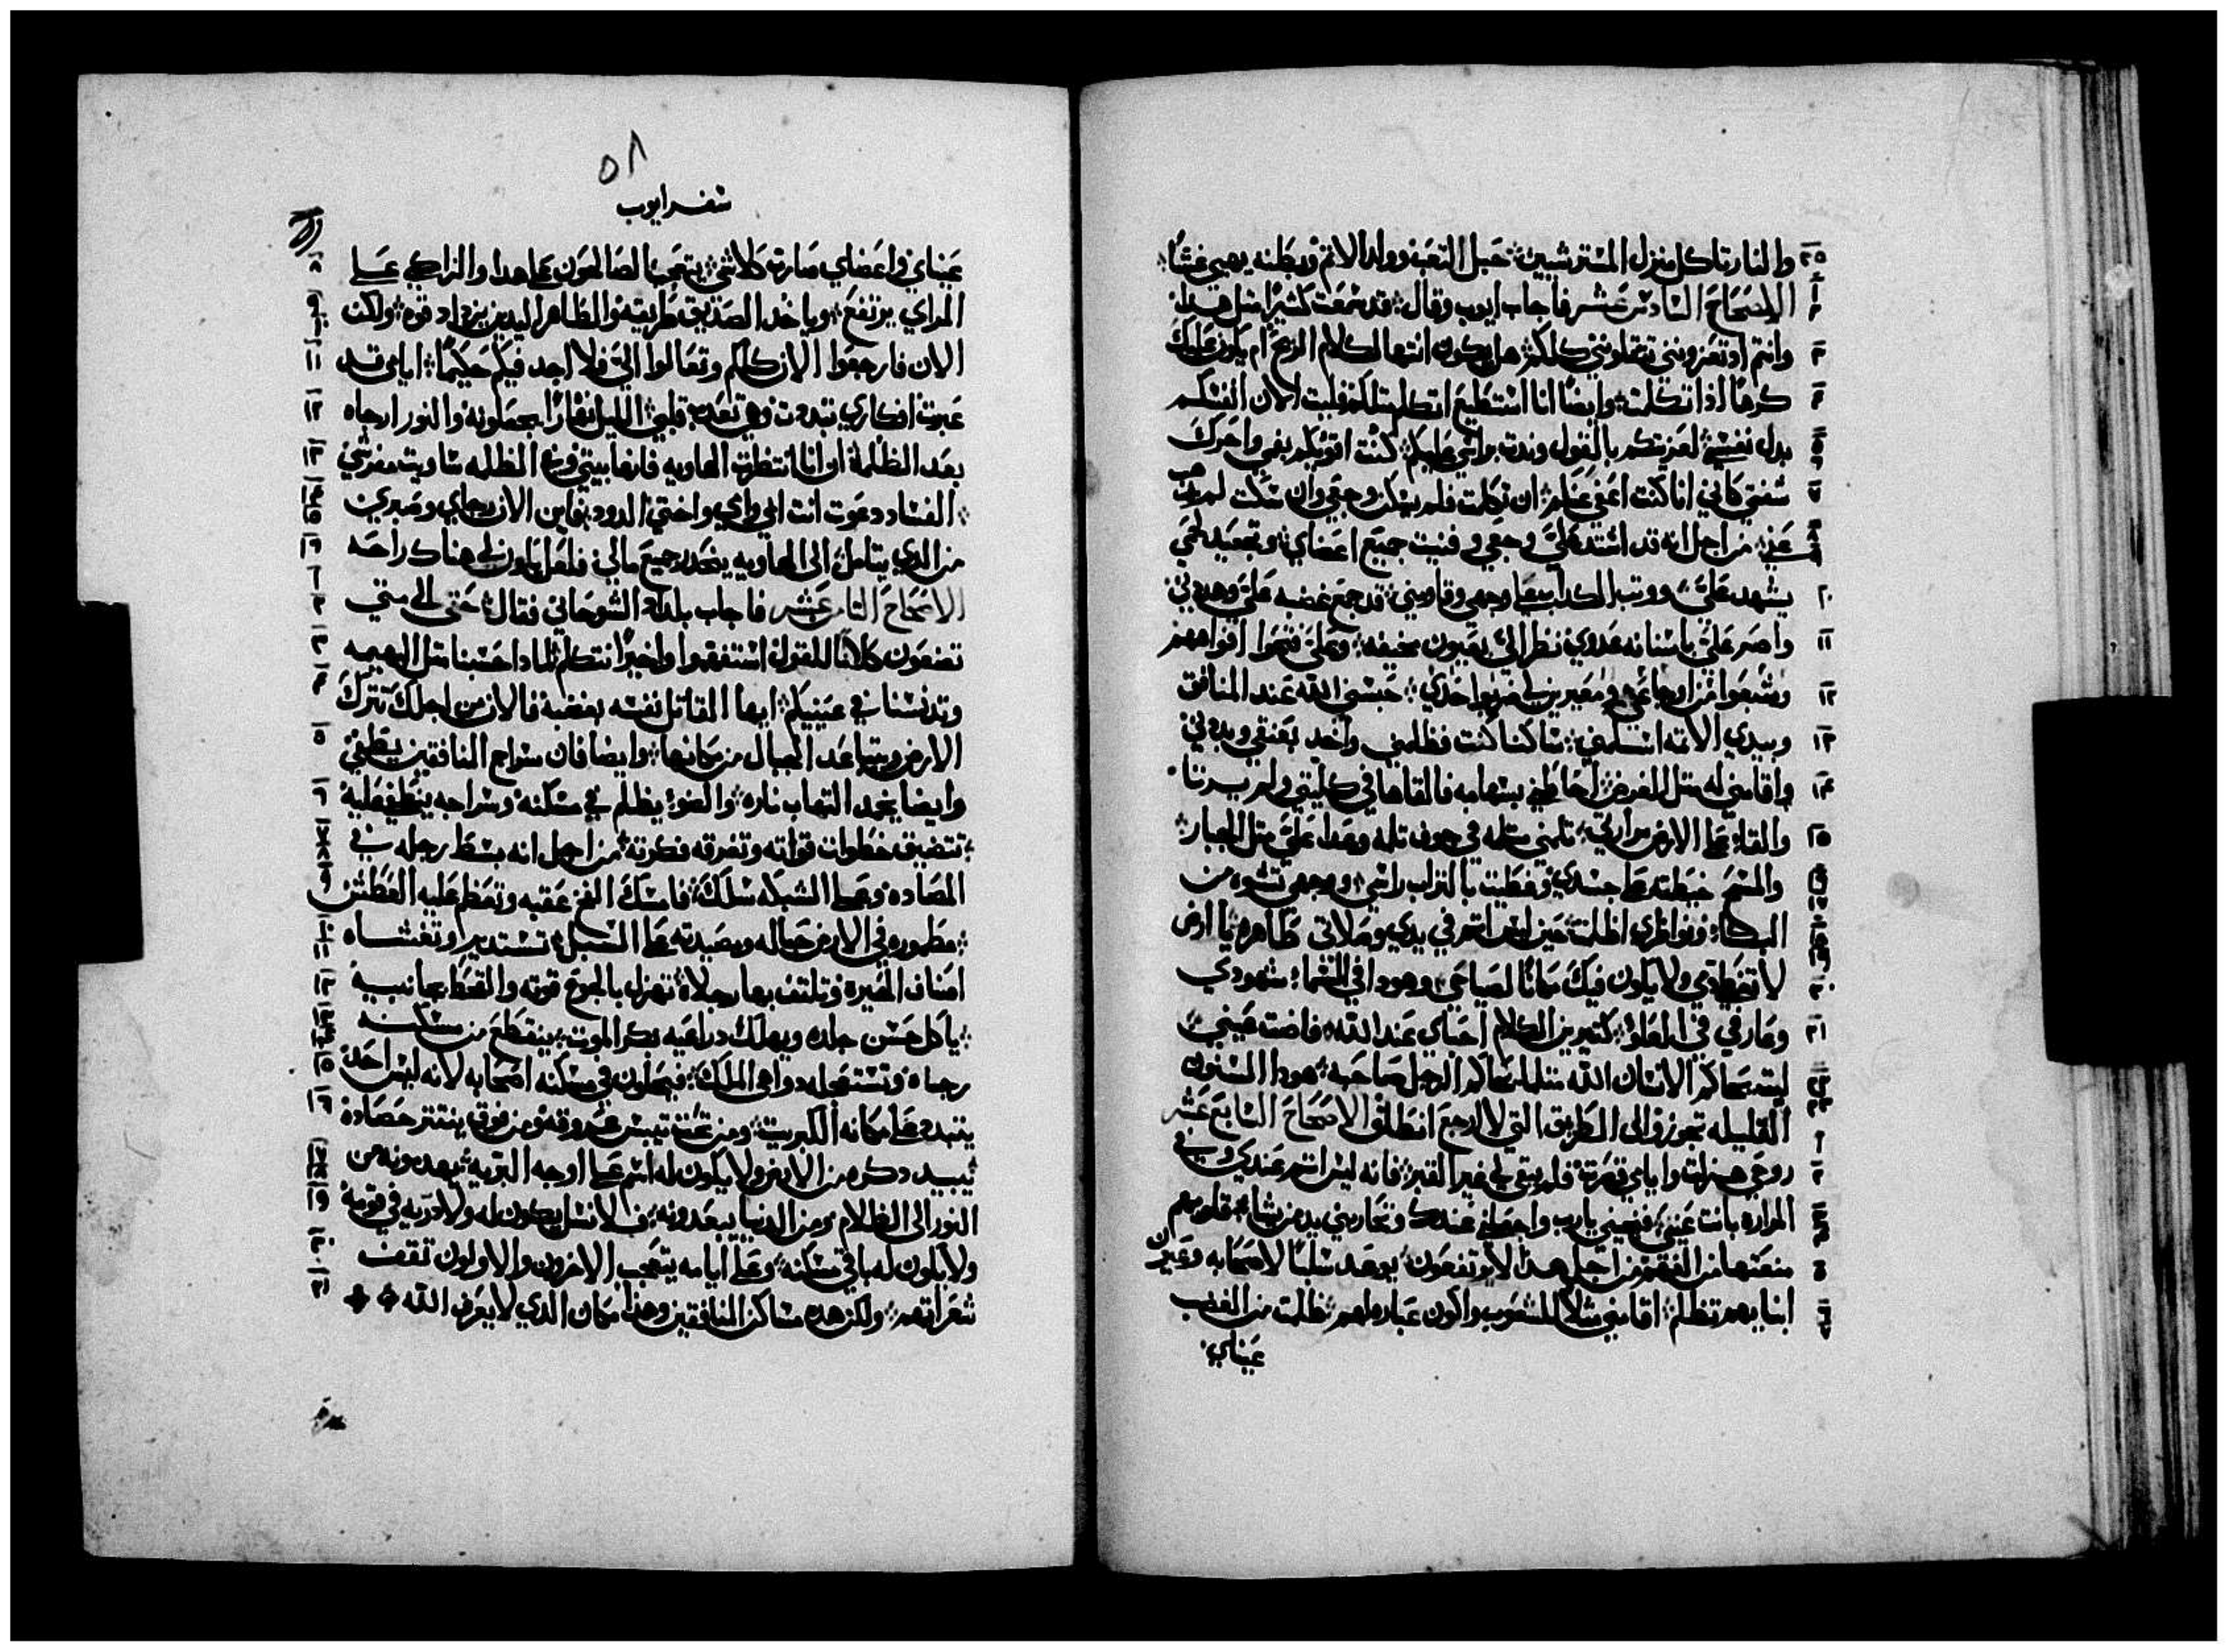 والنار تاكل منزل المسترشيين حبل التعب وولد الاثم وبطنه يهيي غشا
الاصحاح السادس عشر فاجاب ايوب وقال قد سمعت كثيرا مثل هذا
وانتم اذ تعزونني تثقلونني كلكم هل يكون انتها لكلام الريح ام يكون عليك
كرها اذا تكلمت وايضا انا استطيع اتكلم مثلكم فليت الان انفسكم
بدل نفسي لعزيتكم بالقول وندت براسي عليكم كنت اقويكم بفمي واحرك
شفتي كاني انا كنت اعفي عنكم ان تكلمت فلم يسكن وجعي وان سكت لم يذهب
عني من اجل انه قد اشتد علي وجعي وفنيت جميع اعضاي وتجعيد لحمي
يشهد علي ووتب الكداب على وجهي وقاومني قد جمع غضبه علي وهددني
واصر علي باسنانه عدوي نظر الي بعيون مخيفه وعلي فتحوا افواههم
وشبعوا من اوجاعي ومعيرين لي ضربوا خدي حبسني الله عند المنافق
وبيدي الاتمه اسلمني ساكنا كنت فظلمني واخد بعنقي وبددني
واقامني له مثل الغرض احاطني بسهامه فالقاها في كليتي ولم يرتا
والقا على الارض مرارتي تلمني تلمه في جوف تلمه وعدا علي مثل الجبار
والمسح خيطته على جسدي وغطيت بالتراب راسي ووجهي تشوه من
البكا ونواظري اظلمت حين ليس اتم في يدي وصلاتي طاهره يا ارض
لا تغطي دمي ولا يكون فيك مكانا لصياحي وهودا في السما شهودي
وعارفي في العلو كتيرين الكلام احباي عند الله فاضت عيني
ليته يحاكم الانسان الله مثلما يحاكم الرجل صاحبه هودا السنون
القليله تجوز والى الطريق التي لا ارجع انطلق الاصحاح السابع عشر
روحي هزلت وايامي قصرت فلم يبقى لي غير القبر فانه ليس اتم عندي وفي
المراره باتت عيني فنجيني يارب واجعلني عندك وتحاربني يد من يشا قلوبهم
منعتها من الفهم من اجل هدا لا يرتفعون يوعد سلبا لاصحابه وعيون
ابنايهم تظلم اقامني مثلا للشعوب واكون عباره لهم ظلمت من الغضب
عيناي
٥٨
سفر ايوب
عيناي واعضاي صارت كلاشي يتعجب الصالحون على هدا والزاكي على
المراي يرتفع وياخد الصديق طريقه والطاهر اليدين يزداد قوه ولكن
الان فارجعوا الان كلكم وتعالوا الي فلا اجد فيكم حكيما ايامي قد
عبرت افكاري تبددت وهي تعذب قلبي الليل نهارا يجعلونه والنور ارجاه
بعد الظلمه ان انا انتظرت الهاويه فانها بيتي وفي الظلمه ساويت مفرشي
الفساد دعوت انت ابي وامي واختي الدود فاين الان رجاي وصبري
من الدي يتامل الى الهاويه ينحدر جميع مالي فلعل يكون لي هناك راحه
الاصحاح التامن عشر فاجاب بلداد الشوحاني فقال حتى الى متى
تضعون كلاما للقول استفقهوا واخيرا نتكلم لمادا حسبنا مثل البهيمه
وتدنسنا في عينيكم ايها القاتل نفسه بغضبه فالان من اجلك تترك
الارض ويتباعد الجبال من مكانها وايضا فان سراج المنافقين ينطفي
وايضا يخمد التهاب ناره والضو يظلم في مسكنه وسراجه ينطفي عليه
تتضيق خطوات قواته وتغرقه فكرته من اجل انه بسط رجله في
المصاده وعلى الشبكه سلك فامسك الفخ عقبه وتغط عليه العطش
مطموره في الارض حباله ومصيدته على السبيل تستدير وتغشاه
اصناف الحيره وتلتف بها رجلاه تهزل بالجوع قوته والقحط بجانبيه
ياكل حسن جلده ويهلك دراعيه بكر الموت ينقطع من مسكنه
رجاه وتستعجله دواهي الملك فيحلون في مسكنه اصحابه لانه ليس احد
يتبدد على مكانه الكبريت ومن تحت تيبس عروقه ومن فوق ينتتر حصاده
يبيد دكره من الارض ولا يكون له اسم على اوجه البريه يبعدونه من
النور الى الظلام ومن الدنيا يبعدونه فلا نسل يكون له ولا دريه في قومه
ولا يكون له باقي مسكنه وعلى ايامه يتعجب الاخرون والاولون تقف
شعراتهم ولكن هده مساكن المنافقين وهذا مكان الدي لا يعرف الله